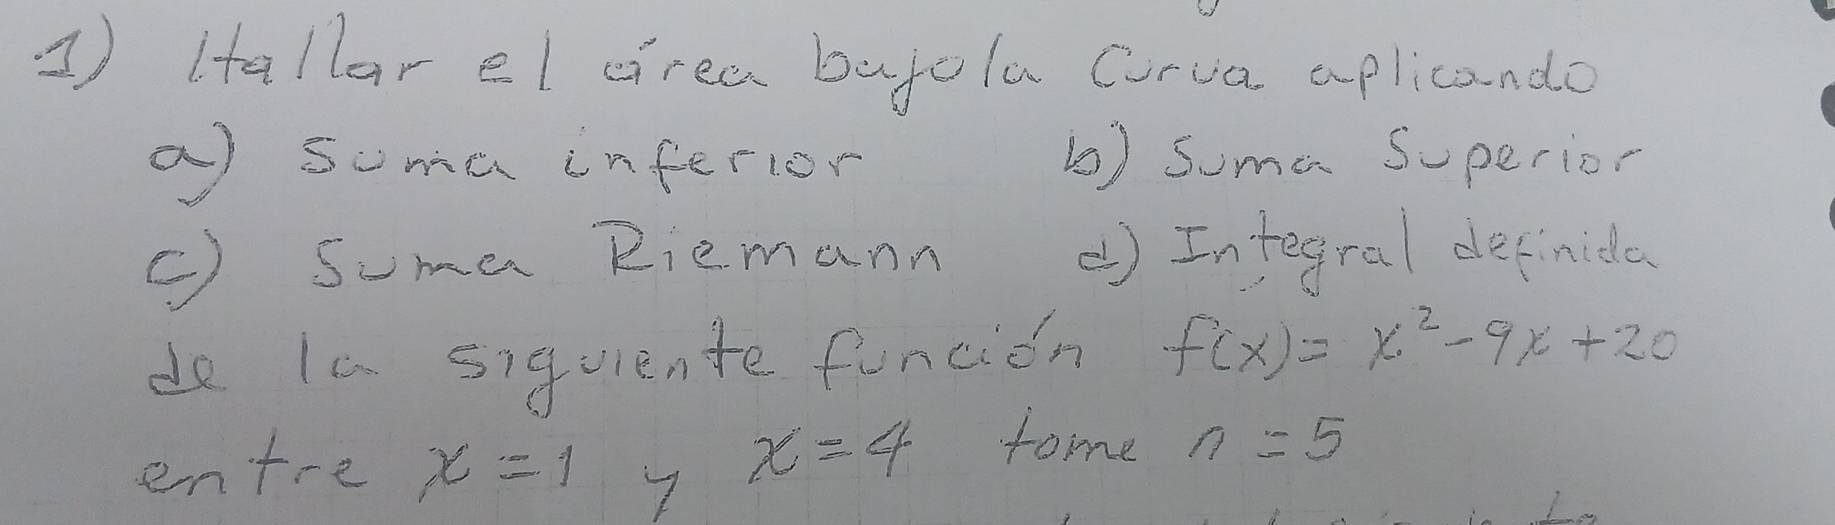 1) Hallar el área bajo la Curva aplicando
a) Suma inferior b) Suma Superior
c) Suma Riemann d) Integral definida
de la siguiente función f(x) = x² - 9x + 20
entre x = 1 y x = 4 tome n = 5